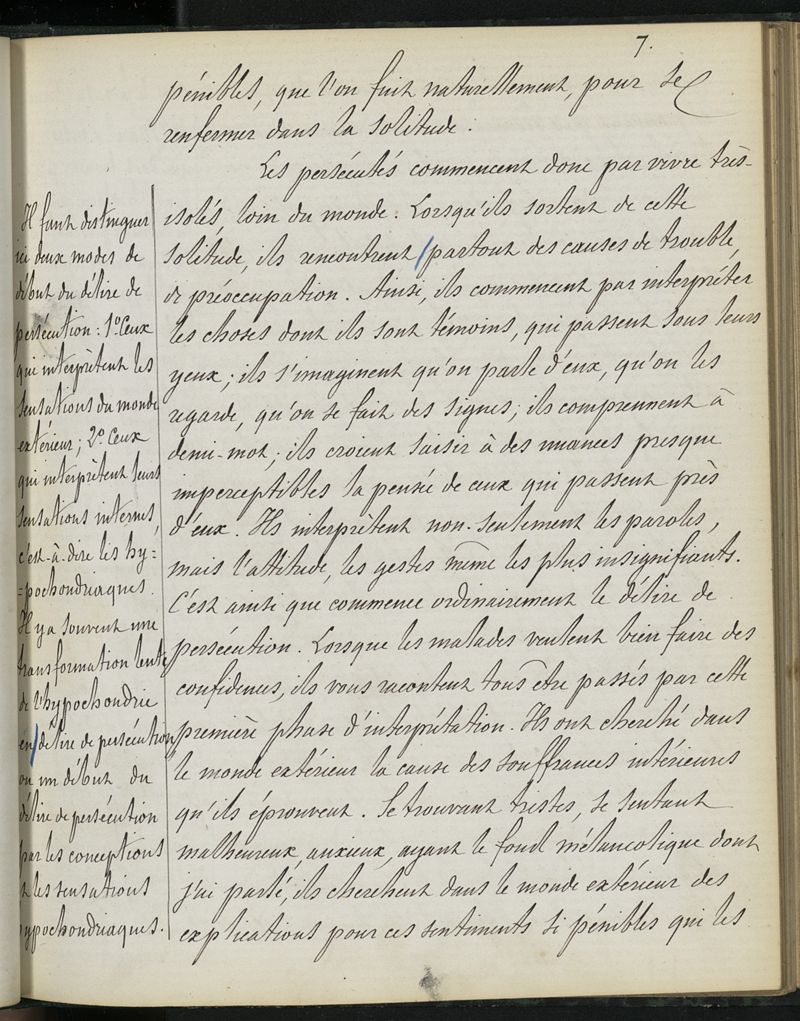 7.
pénibles, que l'on fuit naturellement, pour se
renfermer dans la solitude.
Les persécutés commencent donc par vivre très-
isolés, loin du monde. Lorsqu'ils sortent de cette
solitude, ils rencontrent partout des causes de trouble,
de préoccupation. Ainsi, ils commencent par interpréter
les choses dont ils sont témoins, qui passent sous leurs
yeux; ils s'imaginent qu'on parle d'eux, qu'on les
regarde, qu'on se fait des signes; ils comprennent à
demi-mot; ils croient saisir à des nuances presque
imperceptibles la pensée de ceux qui passent près
d'eux. Ils interprètent non-seulement les paroles,
mais l'attitude, les gestes même les plus insignifiants.
C'est ainsi que commence ordinairement le délire de
persécution. Lorsque les malades veulent bien faire des
confidences, ils vous racontent tous être passés par cette
première phase d'interprétation. Ils ont cherché dans
le monde extérieur la cause des souffrances intérieures
qu'ils éprouvent. Se trouvant tristes, se sentant
malheureux, anxieux, ayant le fond mélancolique dont
j'ai parlé, ils cherchent dans le monde extérieur des
explications pour ces sentiments si pénibles qui les
Il faut distinguer
ici deux modes de
début du délire de
persécution: 1° Ceux
qui interprètent les
sensations du monde
extérieur; 2° Ceux
qui interprètent leurs
sensations internes,
c'est-à-dire les hy=
=pochondriaques.
Il y a souvent une
transformation lente
de l'hypochondrie
en délire de persécution,
ou un début du
délire de persécution
par les conceptions
et les sensations
hypochondriaques.